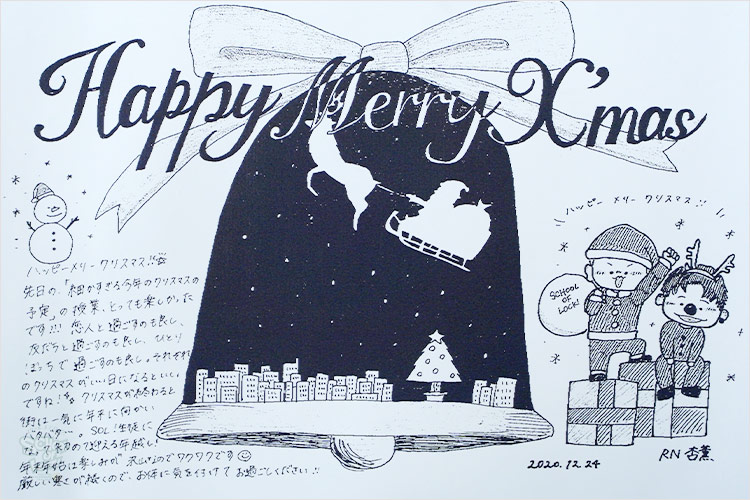 Happy Merry X'mas
ハッピー メリー クリスマス!!
SCHOOL
OF
LOCK!
ハッピーメリークリスマス!!
先日の、「細かすぎる今年のクリスマスの
予定」の授業、とっても楽しかった
です!!! 恋人と過ごすのも良し、
友だちと過ごすのも良し、ひとり
ぼっちで過ごすのも良し。それぞれ
のクリスマスがいい日になるといい
ですね! クリスマスが終わると
街は一気に年末に向かい
バタバター。SOL!生徒に
初の?迎える年越し!
年末年始は楽しみが沢山なのでワクワクです
厳しい寒さが続くので、お体に気を付けてお過ごしください!!
2020.12.24
RN 杏薫